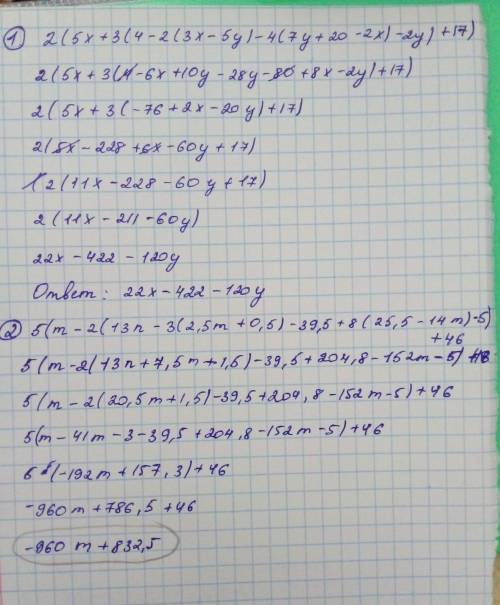 ① 2(5x+3(4-2(3x-5y)-4(7y+20-2x)-2y)+17)
2(5x+3(4-6x+10y-28y-80+8x-2y)+17)
2(5x+3(-76+2x-20y)+17)
2(5x-228+6x-60y+17)
2(11x-228-60y+17)
2(11x-211-60y)
22x-422-120y
Ответ: 22x-422-120y
② 5(m-2(13n-3(2,5m+0,5)-39,5+8(25,5-14m)-5)
+46
5(m-2(13n+7,5m+1,5)-39,5+204,8-152m-5)
5(m-2(20,5m+1,5)-39,5+204,8-152m-5)+46
5(m-41m-3-39,5+204,8-152m-5)+46
(-192m+157,3)+46
-960m+786,5+46
-960m+832,5